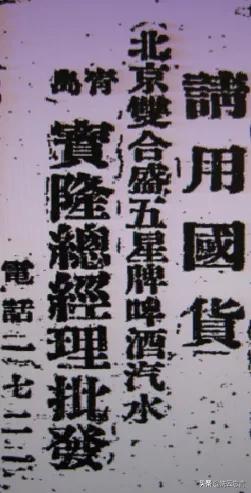 請用國貨
北京雙合盛五星牌啤酒汽水
賓隆總經理批發
電話二七二二
头条